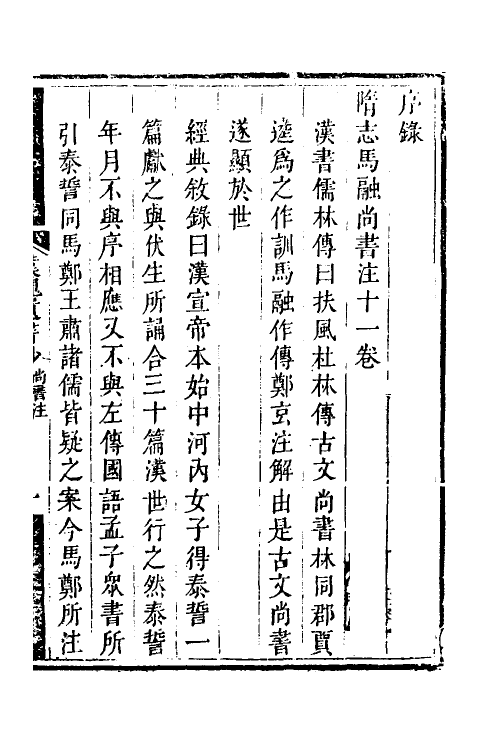 序錄
隋志馬融尚書注十一卷
漢書儒林傳曰扶風杜林傳古文尚書林同郡賈
逵為之作訓馬融作傳鄭玄注解由是古文尚書
遂顯於世
經典敘錄曰漢宣帝本始中河內女子得泰誓一
篇獻之與伏生所誦合三十篇漢世行之然泰誓
年月不與序相應又不與左傳國語孟子眾書所
引泰誓同馬鄭王肅諸儒皆疑之案今馬鄭所注
尚書注
一